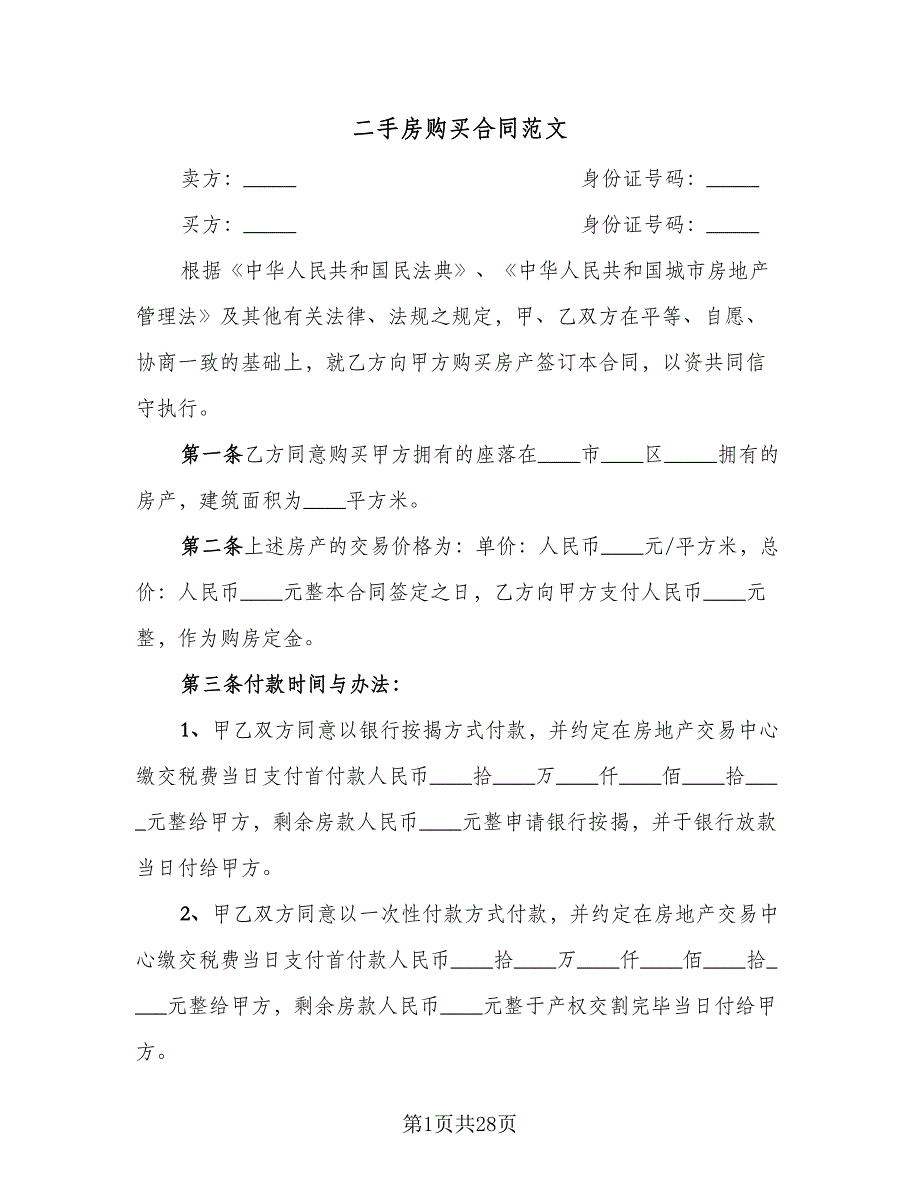 二手房购买合同范文
卖方：_____ 身份证号码：_____
买方：_____ 身份证号码：_____
根据《中华人民共和国民法典》、《中华人民共和国城市房地产
管理法》及其他有关法律、法规之规定，甲、乙双方在平等、自愿、
协商一致的基础上，就乙方向甲方购买房产签订本合同，以资共同信
守执行。
第一条乙方同意购买甲方拥有的座落在____市____区_____拥有的
房产，建筑面积为____平方米。
第二条上述房产的交易价格为：单价：人民币____元/平方米，总
价：人民币____元整本合同签定之日，乙方向甲方支付人民币____元
整，作为购房定金。
第三条付款时间与办法：
1、甲乙双方同意以银行按揭方式付款，并约定在房地产交易中心
缴交税费当日支付首付款人民币____拾____万____仟____佰____拾___
_元整给甲方，剩余房款人民币____元整申请银行按揭，并于银行放款
当日付给甲方。
2、甲乙双方同意以一次性付款方式付款，并约定在房地产交易中
心缴交税费当日支付首付款人民币____拾____万____仟____佰____拾_
___元整给甲方，剩余房款人民币____元整于产权交割完毕当日付给甲
方。
第1页共28页